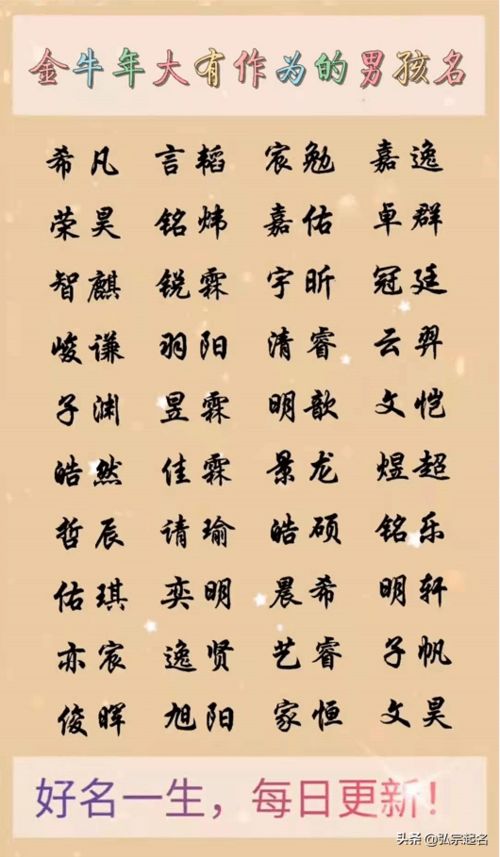 金牛年大有作为的男孩名
希凡 言韬 宸勉 嘉逸
荣昊 铭炜 嘉佑 卓群
智麒 锐霖 宇昕 冠廷
峻谦 羽阳 清睿 云羿
子渊 昱霖 明歆 文恺
皓然 佳霖 景龙 煜超
哲辰 请瑜 皓硕 铭乐
佑琪 奕明 晨希 明轩
亦宸 逸贤 艺睿 子帆
俊晖 旭阳 家恒 文昊
好名一生，每日更新！
头条 @弘宗起名